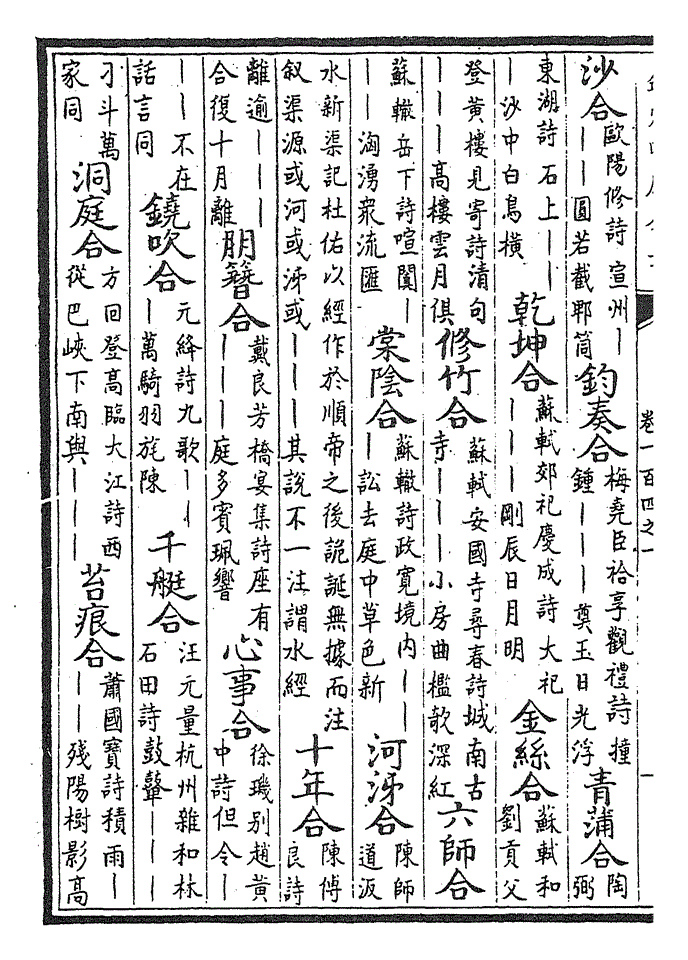 卷一百四之一
沙合歐陽修詩宣州｜｜｜圓若截郫筒鈞奏合梅堯臣祫享觀禮詩撞鍾｜｜｜奠玉日光浮青蒲合陶弼
東湖詩石上｜｜｜沙中白鳥橫乾坤合蘇軾郊祀慶成詩大祀｜｜｜剛辰日月明金絲合蘇軾和劉貢父
登黃樓見寄詩清句｜｜｜高樓雲月俱修竹合蘇軾安國寺尋春詩城南古寺｜｜｜小房曲檻欹深紅六師合
蘇轍岳下詩喧闐｜｜｜洶湧衆流匯棠陰合蘇轍詩政寬境內｜｜｜訟去庭中草色新河泲合陳師道汳
水新渠記杜佑以經作於順帝之後詭誕無據而注叙渠源或河或泲或｜｜｜其說不一注謂水經十年合陳傅良詩
離逾｜｜｜｜合復十月離朋簪合戴良芳橋宴集詩座有｜｜｜庭多賓珮響心事合徐璣別趙黃中詩但令｜
｜｜不在話言同鐃吹合元絳詩九歌｜｜｜萬騎羽旄陳千艇合汪元量杭州雜和林石田詩鼓鼙｜｜｜
刁斗萬家同洞庭合方回登高臨大江詩西從巴峽下南與｜｜｜苔痕合蕭國寶詩積雨｜｜｜殘陽樹影高